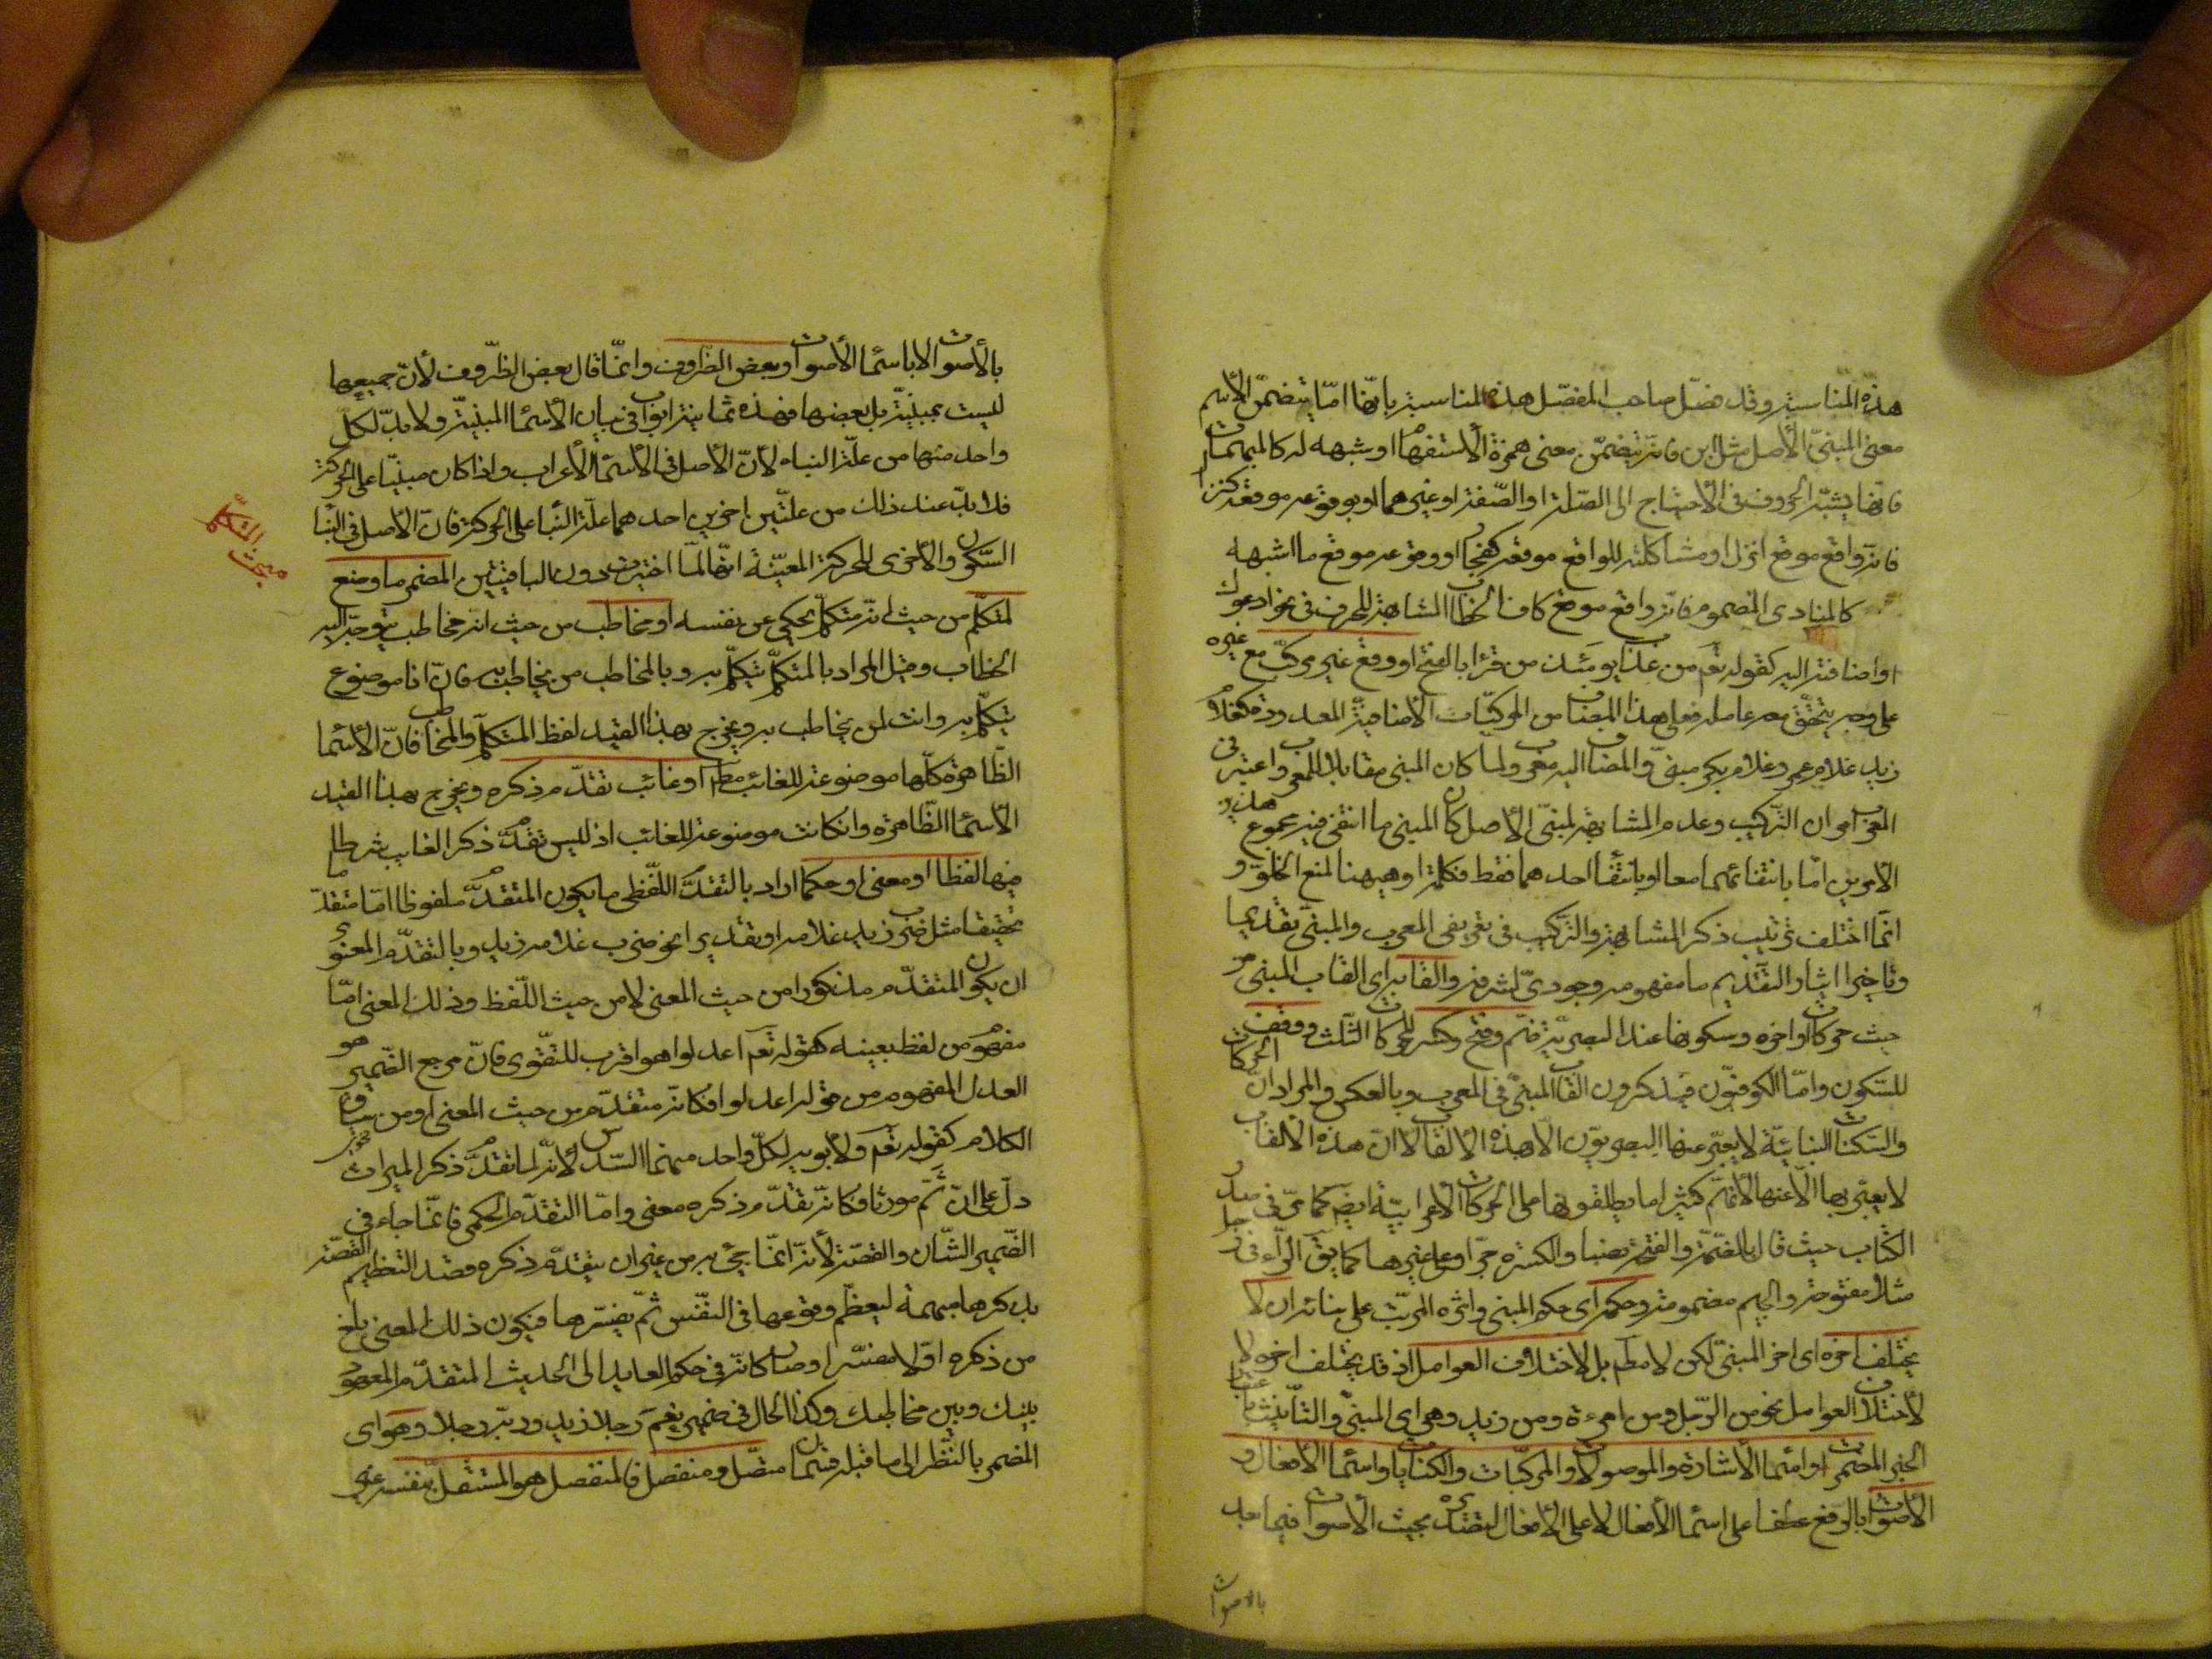 هذه المناسبة وقد فصّل صاحب المفصّل هذه المناسبة بانّها امّا بتضمّن الاسم
معنى المبنىّ الأصل مثل اين فانّه يتضمّن معنى همزة الأستفهام او شبهه له كالمبهمات
فانّها يشبه الحروف فى الأحتياج الى الصّلة او الصّفة او غيرهما او بوقوعه موقعه كنزال
فانّه واقع موقع انزل او مشاكلته للواقع موقعه كفجار او وقوعه موقع ما اشبهه
كالمنادى المضموم فانّه واقع موقع كاف الخطاب المشابهة للحرف فى نحو ادعوك
او اضافته اليه كقوله تعم من عذاب يومئذ من قرأ بالفتح او وقع غير مركّب مع غيره
على وجه يتحقق معه عامله فعلى هذا المضاف من المركّبات الأضافيّة المعدودة كغلام
زيد غلام عمرو غلام بكر مبنىّ والمضاف اليه معرب ولما كان المبنى مقابلا للمعرب واعتبر فى
المعرب امران التّركيب وعدم المشابهة لمبنىّ الأصل كان المبنى ما انتفى فيه مجموع هذين
الأمرين امّا بانتفائهما معا او بانتفاء احدهما فقط فكلمة او ههنا لمنع الخلوّ و
انّما اختلف ترتيب ذكر المشابهة والتّركيب فى تعريفى المعرب والمبنىّ تقديما
وتاخيرا ايثارا لتقديم ما مفهومه وجودىّ لشرفه والقابه اى القاب المبنى من
حيث حركات اواخره وسكونها عند البصريّة ضم وفتح وكسر للحركات الثّلث ووقف
للسّكون وامّا الكوفيّون فيذكرون القاب المبنىّ فى المعرب وبالعكس والمراد انّ الحركات
والسّكنات البنائيّة لا يعبّر عنها البصريّون الا بهذه الالقاب لا انّ هذه الألقاب
لا يعبّر بها الّا عنها لأنّهم كثيرا ما يطلقونها على الحركات الأعرابيّة ايضم كما مرّ فى صدر
الكتاب حيث قال بالضّمّة والفتحة نصبا والكسرة جرّا وعلى غيرها كما يق الرّاء فى رجل
مثلا مفتوحة والجيم مضمومة وحكمه اى حكم المبنى واثره المرتّب على بنائه ان لا
يختلف آخره اى اخر المبنىّ لكن لا مطم بل لأختلاف العوامل اذ قد يختلف اخره لا
لأختلاف العوامل نحو من الرّجل ومن امرءة ومن زيد وهى اى المبنىّ والتّأنيث باعتبار
الخبر المضمرات واسماء الأشارة والموصولات والمركّبات والكنايات واسماء الأفعال و
الأصوات بالرّفع عطفا على اسماء الأفعال لا على الأفعال لتصديره بحيث الأصوات فيما بعد
بالاصوات
بالأصوات الا باسماء الأصوات وبعض الظروف وانّما قال بعض الظّروف لأنّ جميعها
ليست بمبنيّة بل بعضها فهذه ثمانية ابواب فى بيان الأسماء المبنيّة ولا بدّ لكلّ
واحد منها من علّة البناء لأنّ الأصل فى الأسماء الأعراب واذا كان مبنيّا على الحركة
فلا بدّ عند ذلك من علّتين اخريين احدهما علّة البناء على الحركة فانّ الأصل فى البناء
السّكون والأخرى للحركة المعيّنة انّها لما اختيرت دون الباقيتين المضمر ما وضع
مبحث المتكلّم
لمتكلّم من حيث انّه متكلّم يحكى عن نفسه او مخاطب من حيث انّه مخاطب يتوجّه اليه
الخطاب وقيل المراد بالمتكلّم من يتكلّم به وبالمخاطب من يخاطب به فانّ انا موضوع
يتكلّم به وانت لمن يخاطب به ويخرج بهذا القيد لفظ المتكلّم والمخاطب فانّ الأسماء
الظّاهرة كلّها موضوعة للغائب مطم او غائب تقدّم ذكره ويخرج بهذا القيد
الأسماء الظّاهرة وان كانت موضوعة للغائب اذ ليس تقدّم ذكر الغايب شرطا
فيها لفظا او معنى او حكما اراد بالتقدّم اللّفظى ما يكون المتقدّم ملفوظا امّا متقدّما
تحقيقا مثل ضرب زيد غلامه او تقديرا نحو ضرب غلامه زيد وبالتقدّم المعنوى
ان يكون المتقدّم مذكورا من حيث المعنى لا من حيث اللّفظ وذلك المعنى امّا
مفهوم من لفظ بعينه كقوله تعم اعدلوا هو اقرب للتّقوى فانّ مرجع الضّمير هو
العدل المفهوم من قوله اعدلوا فكانّه متقدّم من حيث المعنى او من سياق
الكلام كقوله تعم ولأبويه لكلّ واحد منهما السّدس لأنّه لما تقدّم ذكر الميراث
دلّ على انّ ثمّ مورّثا فكانّه تقدّم ذكره معنى وامّا التقدّم الحكمى فانّما جاء فى
الضّمير الشّان والقصّة لأنّه انّما جىء به من غير ان يتقدّم ذكره قصد التّعظيم القصّة
بذكرها مبهمة ليعظّم وقوعها فى النفس ثمّ يفسّرها فيكون ذلك المعنى بلغ
من ذكره اوّلا مفسّرا وصار كانّه فى حكم العايد الى الحديث المتقدّم المعهود
بينك وبين مخاطبك وكذا الحال فى ضمير نعم رجلا زيد وربّه رجلا وهو اى
المضمر بالنّظر الى ما قبله قسمان متّصل ومنفصل فالمنفصل هو المستقلّ بنفسه غير